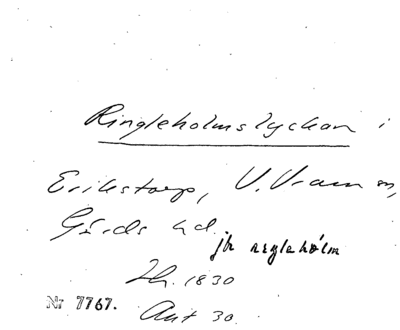 Ringleholmslyckan i
Erikstorp, V. Vram sn,
Gärds hd.
jfr regleholm
Lh. 1830
Nr 7767.
Ant 30